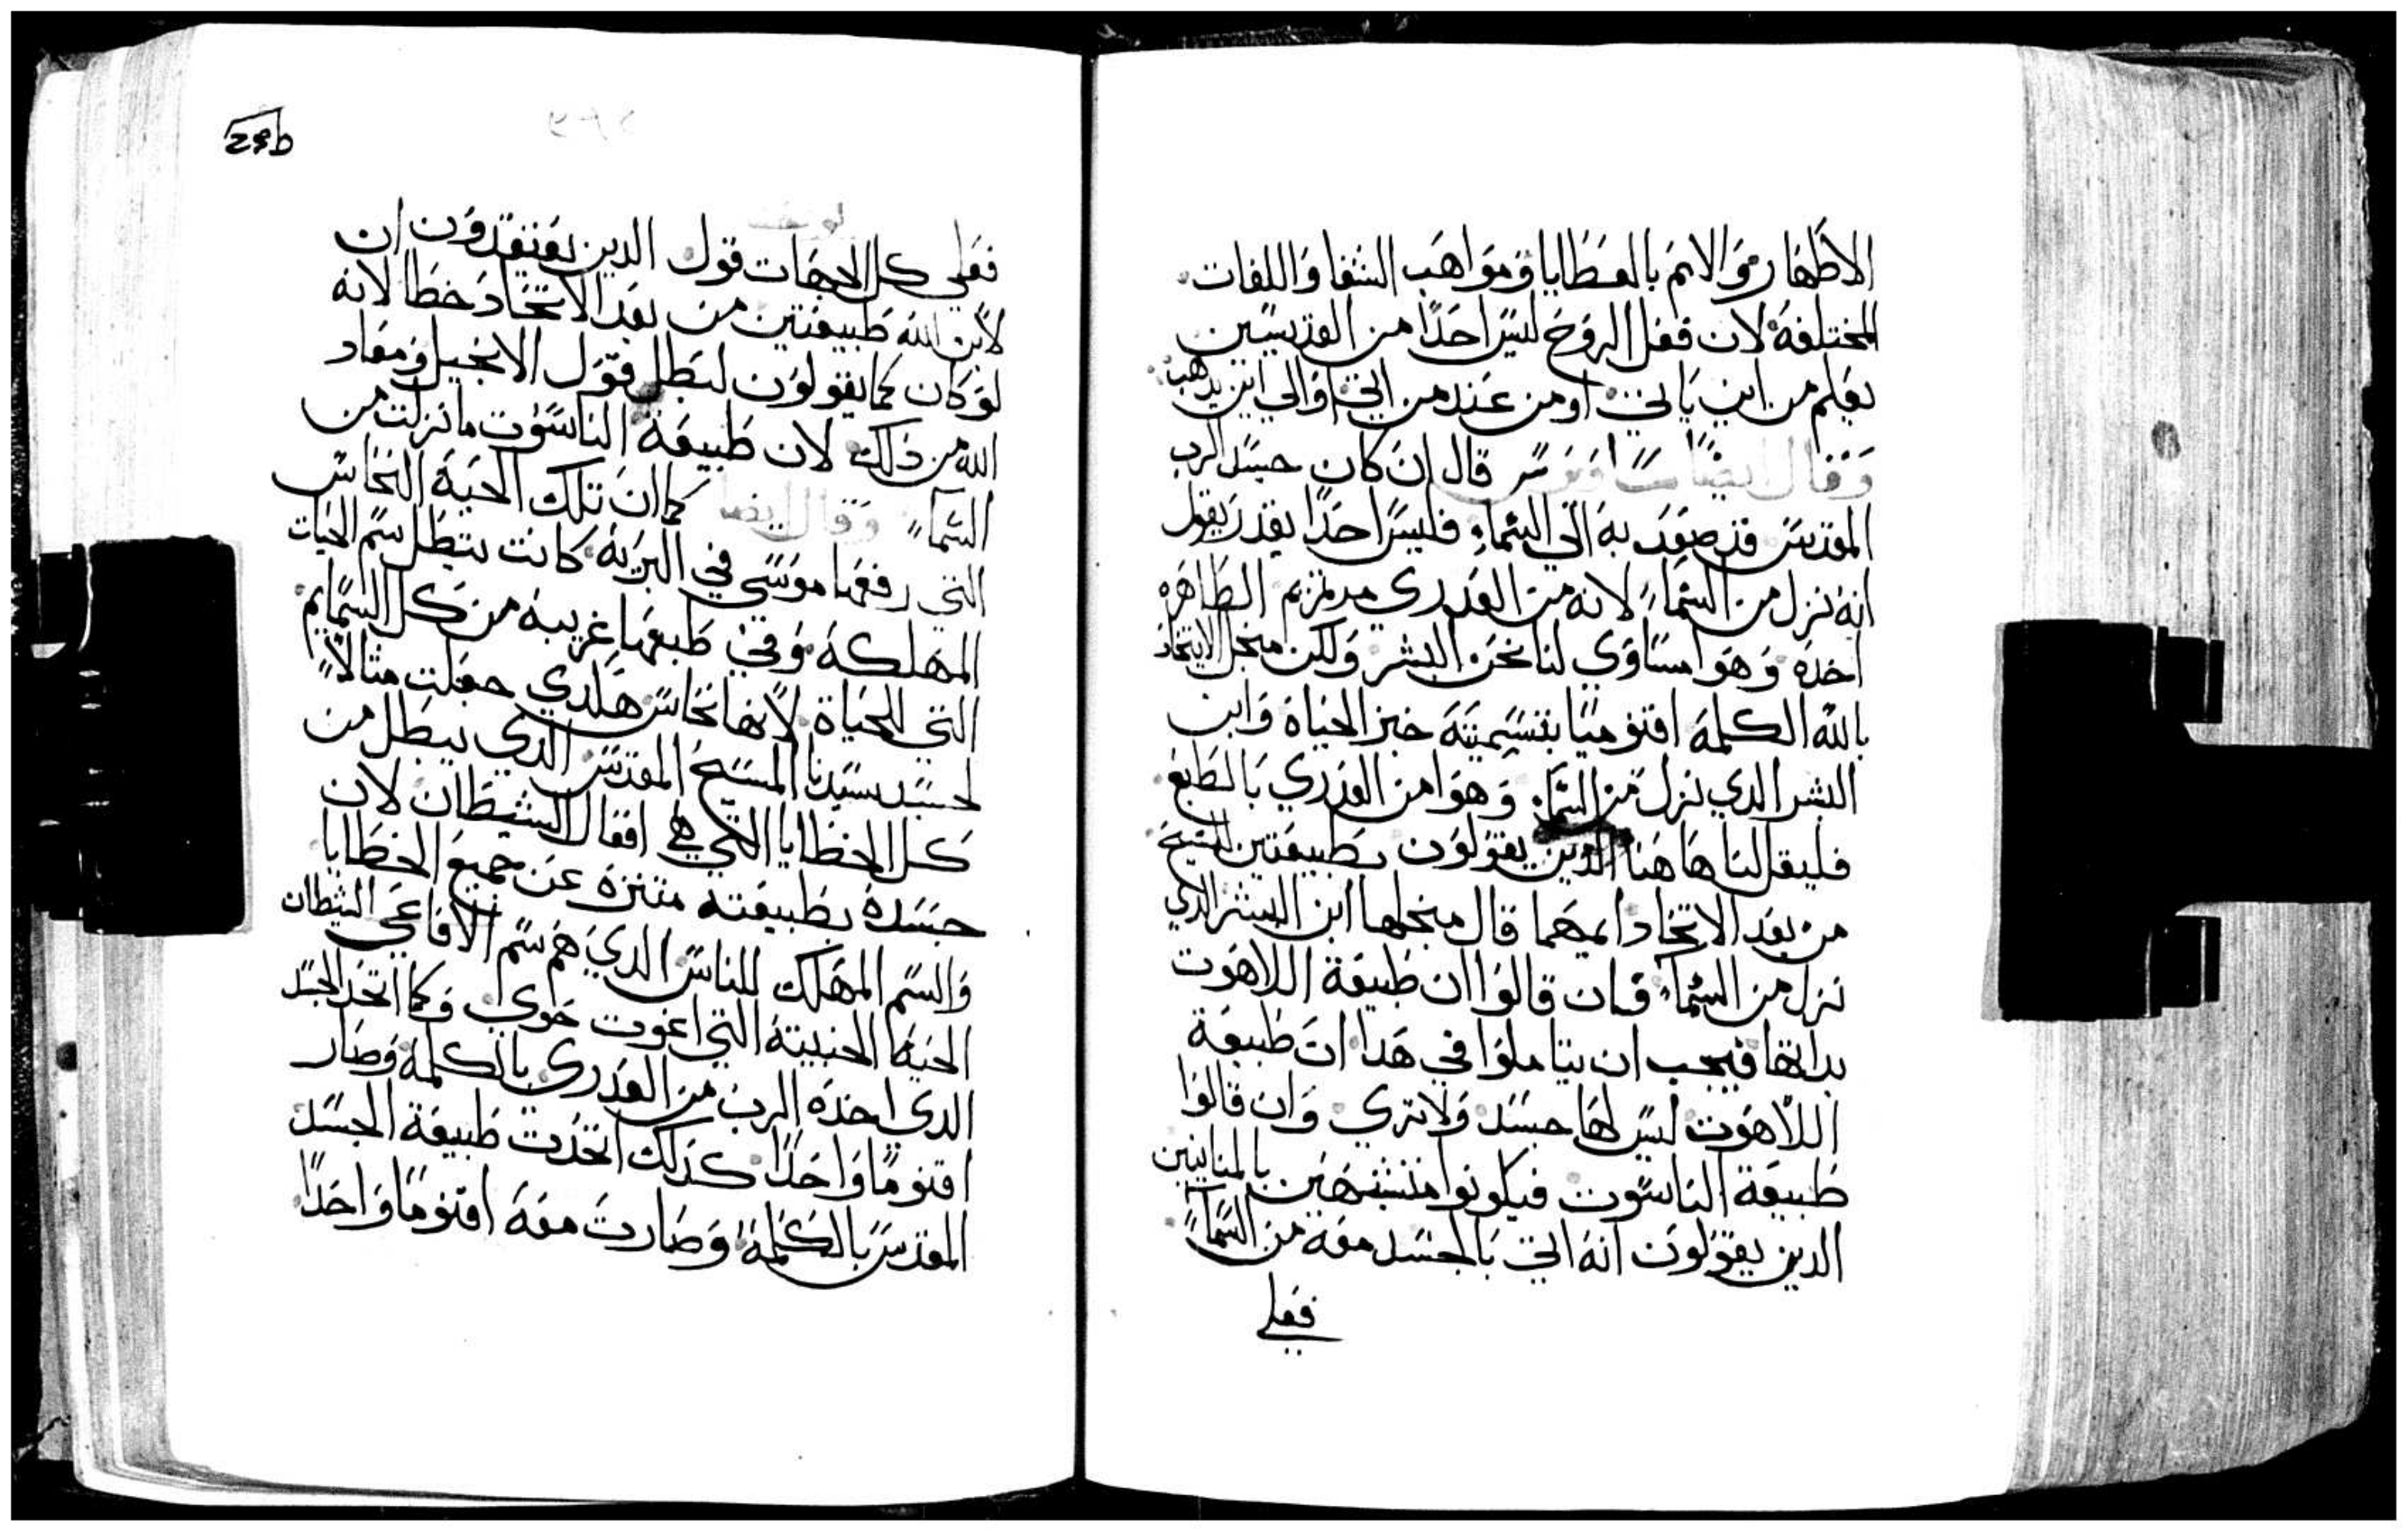 الاطهار والامم بالعطايا ومواهب الشفا واللغات
المختلفة لان فعل الروح ليس احدًا من القديسين
يعلم من اين ياتي او من عند من اتي او الي اين يذهب
وقال ايضًا ساويرس قال ان كان جسد الرب
المقدس قد صعد به الي السماء فليس احدًا يقدر يقول
انه نزل من السماء لانه من العدري مرتمريم الطاهره
اخده وهوا مساوي لنا نحن البشر ولكن منجل الاتحاد
بالله الكلمة اقنوميًا بتسيميته خبز الحياة وابن
البشر الدي نزل من السماء وهوا من العدري بالطبع
فليقل لنا هاهنا الدين يقولون بطبيعتين للمسيح
من بعد الاتحاد ايهما قال منجلها ابن البشر الدي
نزل من السماء فان قالوا ان طبيعة اللاهوت
بداتها فيجب ان يتاملوا في هدا ان طبيعة
اللاهوت ليس لها جسد ولا تري وان قالوا
طبيعة الناسوت فيكونوا متشبهين بالمنانيين
الدين يقولون انه اتي بالجسد معه من السماء
فعلي
29b
فعلي كل الجهات قول الدين يعتقدون ان
لابن الله طبيعتين من بعد الاتحاد خطا لانه
لو كان كما يقولون لبطل قول الانجيل ومعاد
الله من دلك لان طبيعة الناسوت ما نزلت من
السماء وقال ايضا كما ان تلك الحية النحاس
التي رفعها موسي في البرية كانت تبطل سم الحيات
المهلكة وفي طبعها غريبة من كل السمايم
التي للحياة لانها نحاس هلدي جعلت مثالاً
لجسد سيدنا المسيح المقدس الدي يبطل من
كل الخطايا التي هي افعال الشيطان لان
جسده بطبيعته متنزه عن جميع الخطايا
والسم المهلك للناس الدي هم سم الافاعي الشيطان
الحية الخبيثة التي اغوت حوي وكما اتحد الجسد
الدي اخده الرب من العدري بالكلمة وصار
اقنومًا واحدًا كدلك اتحدت طبيعة الجسد
المقدس بالكلمة وصارت معه اقنومًا واحدًا